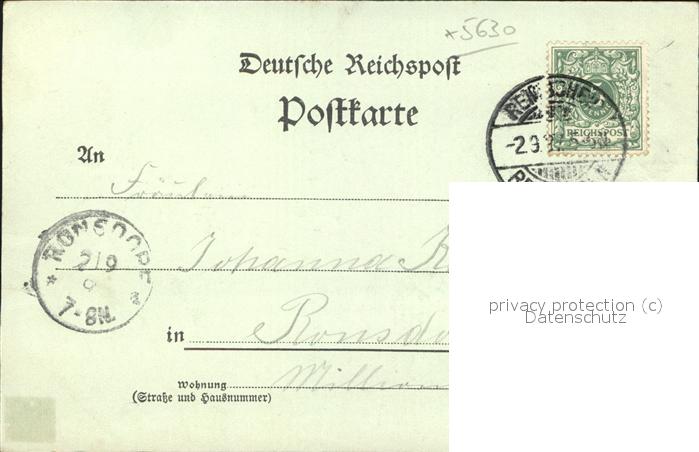 +5630
Deutsche Reichspost
Postkarte
REICHSPOST
REMSCHEID
-2.9.97
An
Fräulein
RONSDORF
2/9
7-8N.
Johanna
in Ronsdo
Wohnung
(Straße und Hausnummer)
privacy protection (c)
Datenschutz